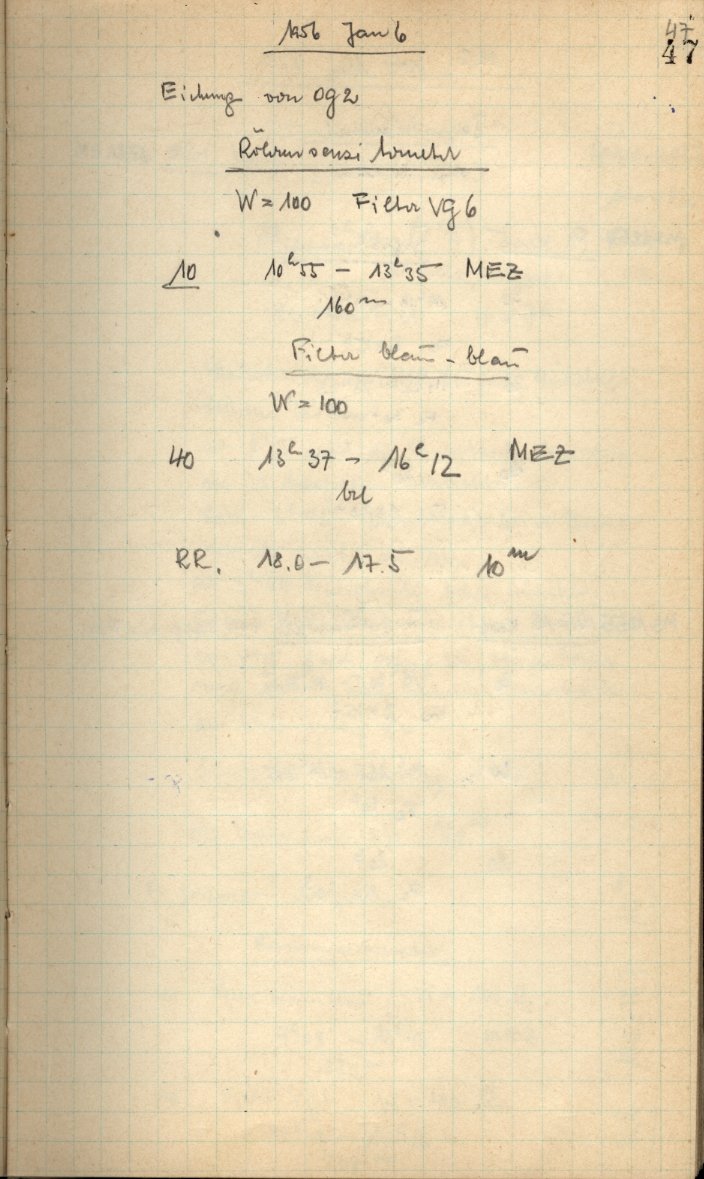 1956 Jan 6
47
47
Eichung von Og2
Röhrensensitometer
W = 100 Filter VG6
10 10h55 – 13h35 MEZ
160m
Filter blau – blau
W = 100
40 13h37 – 16h12 MEZ
RR. 18.0 – 17.5 10m